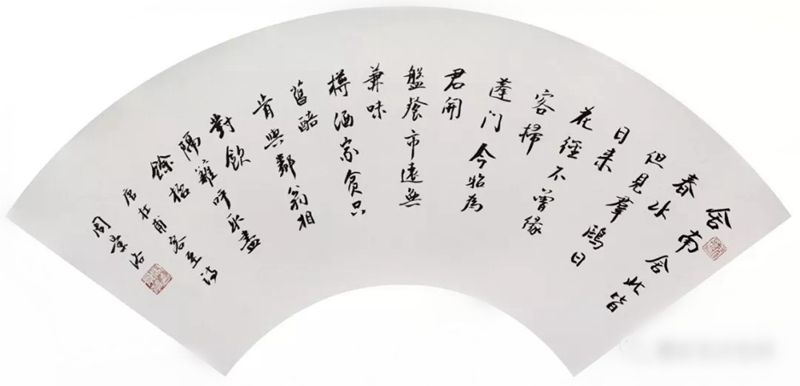 舍南舍北皆
春水
但見羣鷗日
日来
花徑不曾緣
客掃
蓬门今始為
君開
盤飱市遠無
兼味
樽酒家貧只
舊醅
肯與鄰翁相
對飲
隔籬呼取盡
餘杯
唐杜甫客至詩
周景洛